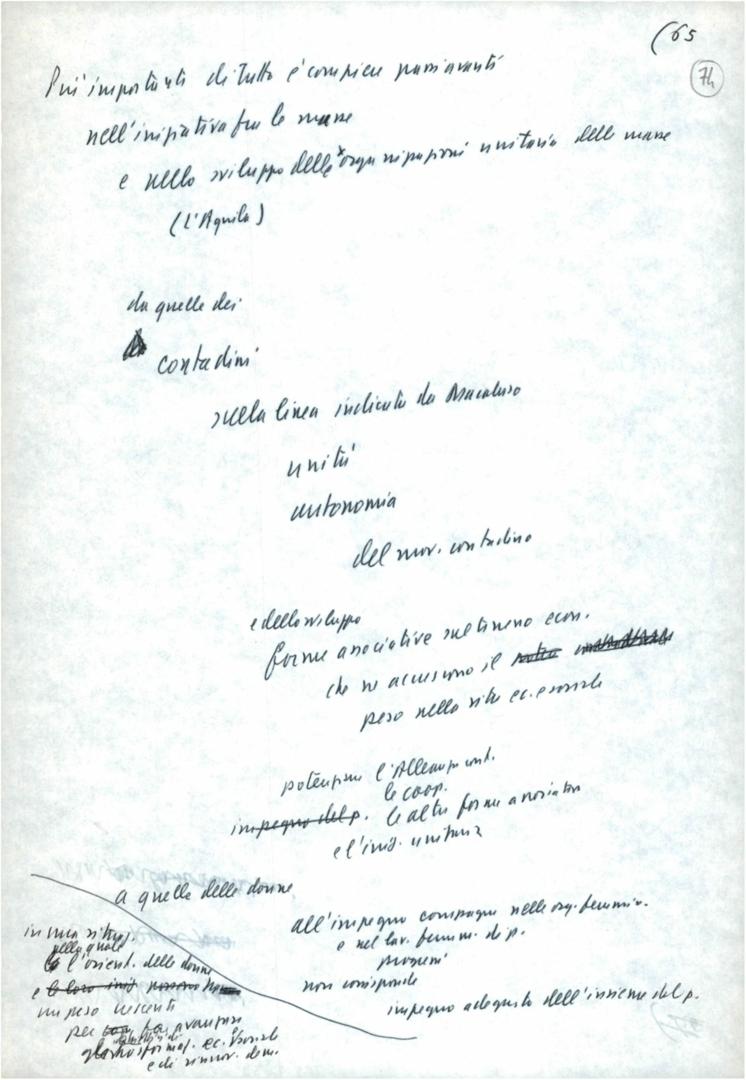 (65
74
Più importanti di tutto è compiere passi avanti
nell'iniziativa fra le masse
e nello sviluppo delle organizzazioni unitarie delle masse
(L'Aquila)
da quelle dei
contadini
sulla linea indicata da Macaluso
unità
autonomia
del mov. contadino
e dello sviluppo
forme associative sul terreno econ.
che ne accrescono il
peso nella vita ec. e sociale
potenziare l'Alleanza cont.
le coop.
impegno del p. le altre forme associative
e l'iniz. unitaria
a quelle delle donne
all'impegno compagne nelle org. femmin.
e nel lav. femm. di p.
non corrisponde
impegno adeguato dell'insieme del p.
in una situaz.
nella quale
l'orient. delle donne
e le loro iniz.
un peso crescenti
per avanzare
ec. sociale
e di rinnov. dem.